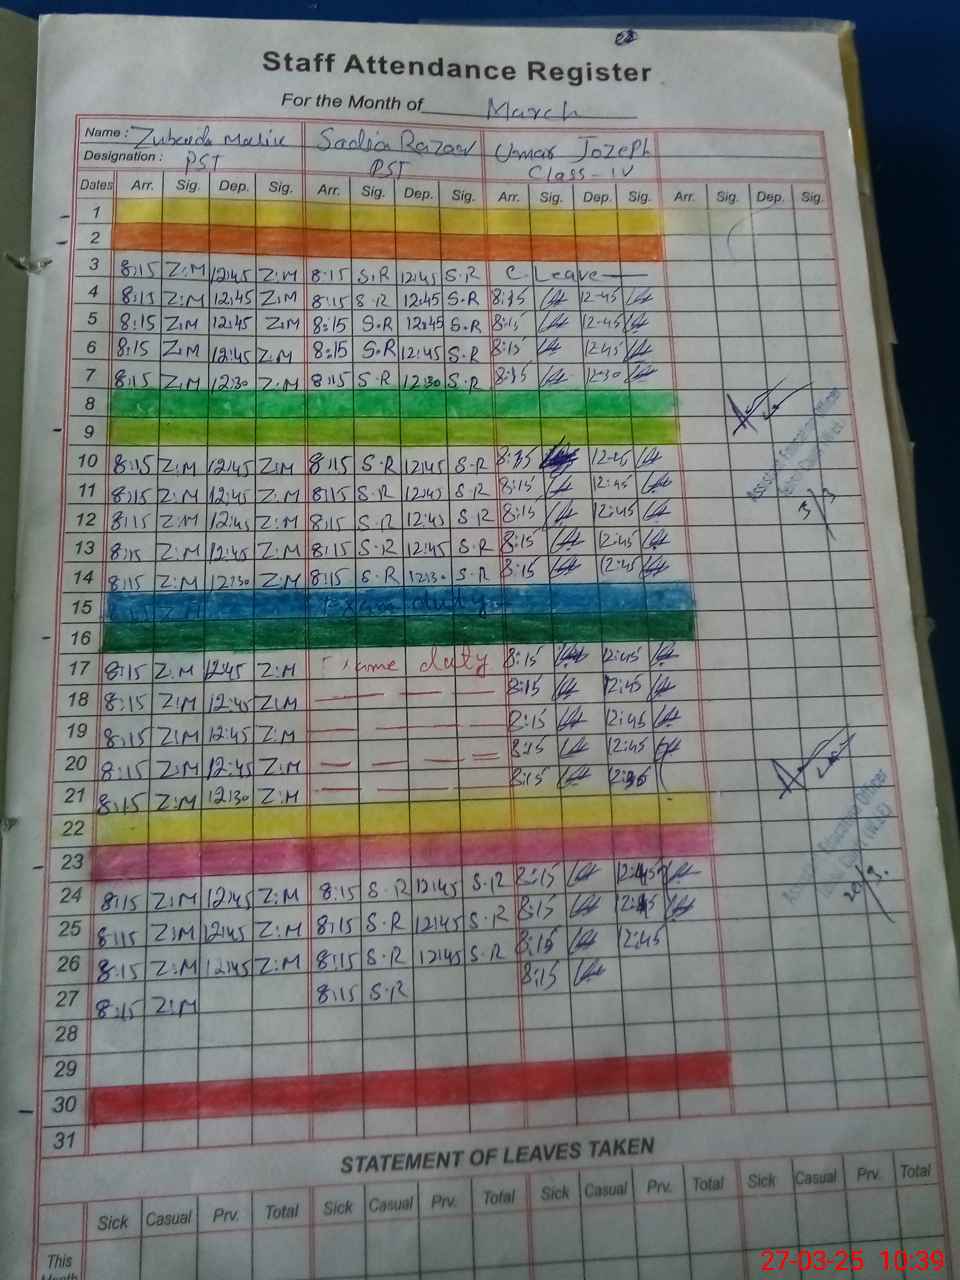 Staff Attendance Register
For the Month of March
Name : Zubaida Malik Sadia Razaq Umar Jozeph
Designation : PST PST Class-IV
Dates Arr. Sig. Dep. Sig. Arr. Sig. Dep. Sig. Arr. Sig. Dep. Sig. Arr. Sig. Dep. Sig.
1
2
3 8:15 Z:M 12:45 Z:M 8:15 S.R 12:45 S.R C. Leave
4 8:15 Z:M 12:45 Z:M 8:15 S.R 12:45 S.R 8:15 12:45
5 8:15 Z:M 12:45 Z:M 8:15 S.R 12:45 S.R 8:15 12:45
6 8:15 Z:M 12:45 Z:M 8:15 S.R 12:45 S.R 8:15 12:45
7 8:15 Z:M 12:30 Z:M 8:15 S.R 12:30 S.R 8:15 12:30
8
9
10 8:15 Z:M 12:45 Z:M 8:15 S.R 12:45 S.R 8:15 12:45
11 8:15 Z:M 12:45 Z:M 8:15 S.R 12:45 S.R 8:15 12:45
12 8:15 Z:M 12:45 Z:M 8:15 S.R 12:45 S.R 8:15 12:45
13 8:15 Z:M 12:45 Z:M 8:15 S.R 12:45 S.R 8:15 12:45
14 8:15 Z:M 12:30 Z:M 8:15 S.R 12:30 S.R 8:15 12:45
15 8:15 Z:M duty
16
17 8:15 Z:M 12:45 Z:M duty 8:15 12:45
18 8:15 Z:M 12:45 Z:M 8:15 12:45
19 8:15 Z:M 12:45 Z:M 8:15 12:45
20 8:15 Z:M 12:45 Z:M 8:15 12:45
21 8:15 Z:M 12:30 Z:M 8:15
22
23
24 8:15 Z:M 12:45 Z:M 8:15 S.R 12:45 S.R 8:15 12:45
25 8:15 Z:M 12:45 Z:M 8:15 S.R 12:45 S.R 8:15 12:45
26 8:15 Z:M 12:45 Z:M 8:15 S.R 12:45 S.R 8:15 12:45
27 8:15 Z:M 8:15 S.R 8:15
28
29
30
31
Assistant Education Officer
3/3
Education Officer
20/3.
STATEMENT OF LEAVES TAKEN
Sick Casual Prv. Total Sick Casual Prv. Total Sick Casual Prv. Total Sick Casual Prv. Total
This
Month
27-03-25 10:39